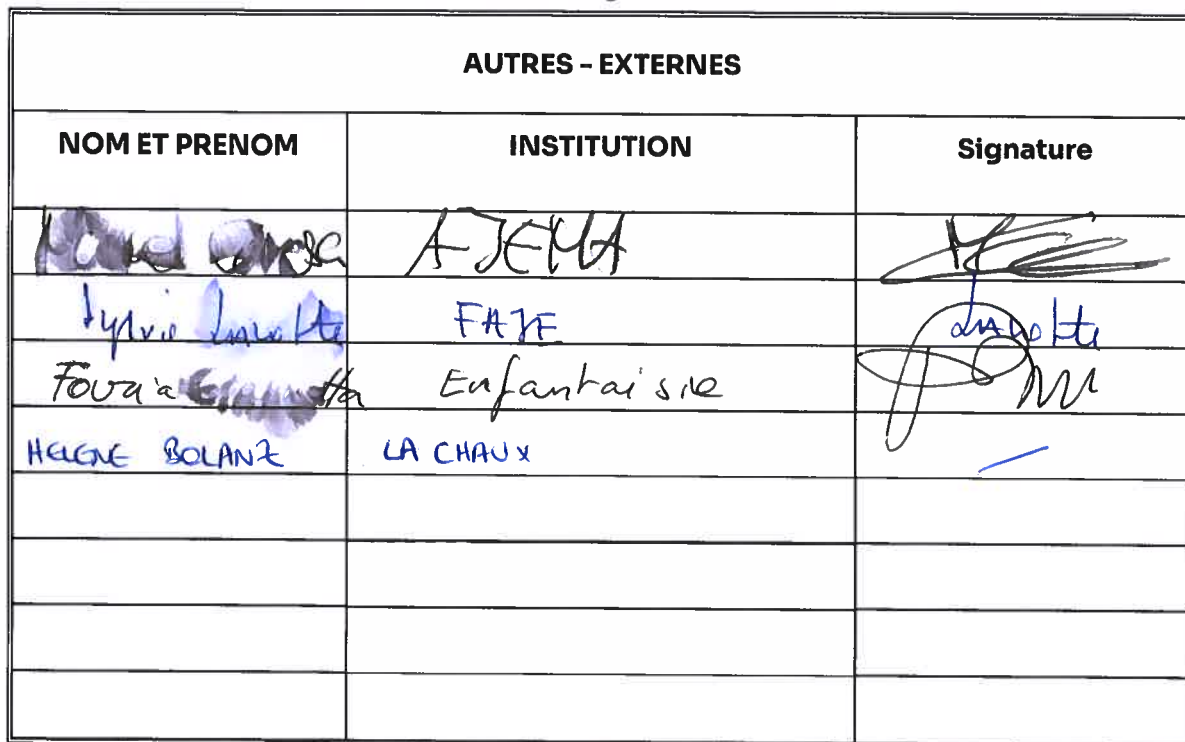 AUTRES – EXTERNES
NOM ET PRENOM INSTITUTION Signature
AJEMA
Sylvie FAJE
Enfantaisie
HELENE BOLANZ LA CHAUX